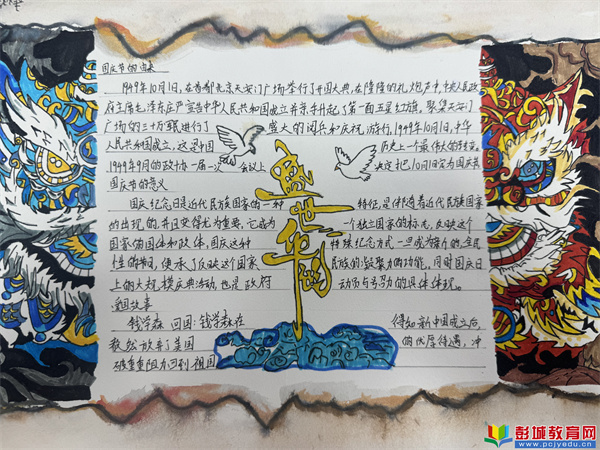 国庆节的由来
1949年10月1日,在首都北京天安门广场举行了开国大典,在隆隆的礼炮声中,中央人民政
府主席毛泽东庄严宣告中华人民共和国成立并亲手升起了第一面五星红旗。聚集天安门
广场的三十万军民进行了盛大的阅兵和庆祝游行。1949年10月1日,中华
人民共和国成立,这是中国历史上一个最伟大的转变。
1949年9月的政协一届一次会议上决定把10月1日定为国庆
国庆节的意义
国庆纪念日是近代民族国家的一种特征,是伴随着近代民族国家
的出现的,并且变得尤为重要。它成为一个独立国家的标志,反映这个
国家的国体和政体。国庆这种特殊纪念方式一旦成为新的、全民
性的节日,便承了反映这个国家民族的凝聚力的功能。同时国庆日
上的大规模庆典活动,也是政府动员与号召力的具体体现。
爱国故事
钱学森回国:钱学森在得知新中国成立后,
毅然放弃了美国的优厚待遇,冲
破重重阻力回到祖国
盛世华
彭城教育网
www.pcjyedu.cn